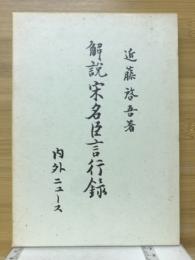 近藤啓吾著
解説宋名臣言行録
内外ニュース